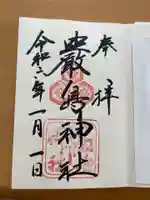 奉拝
嚴島神社
令和二年一月一日